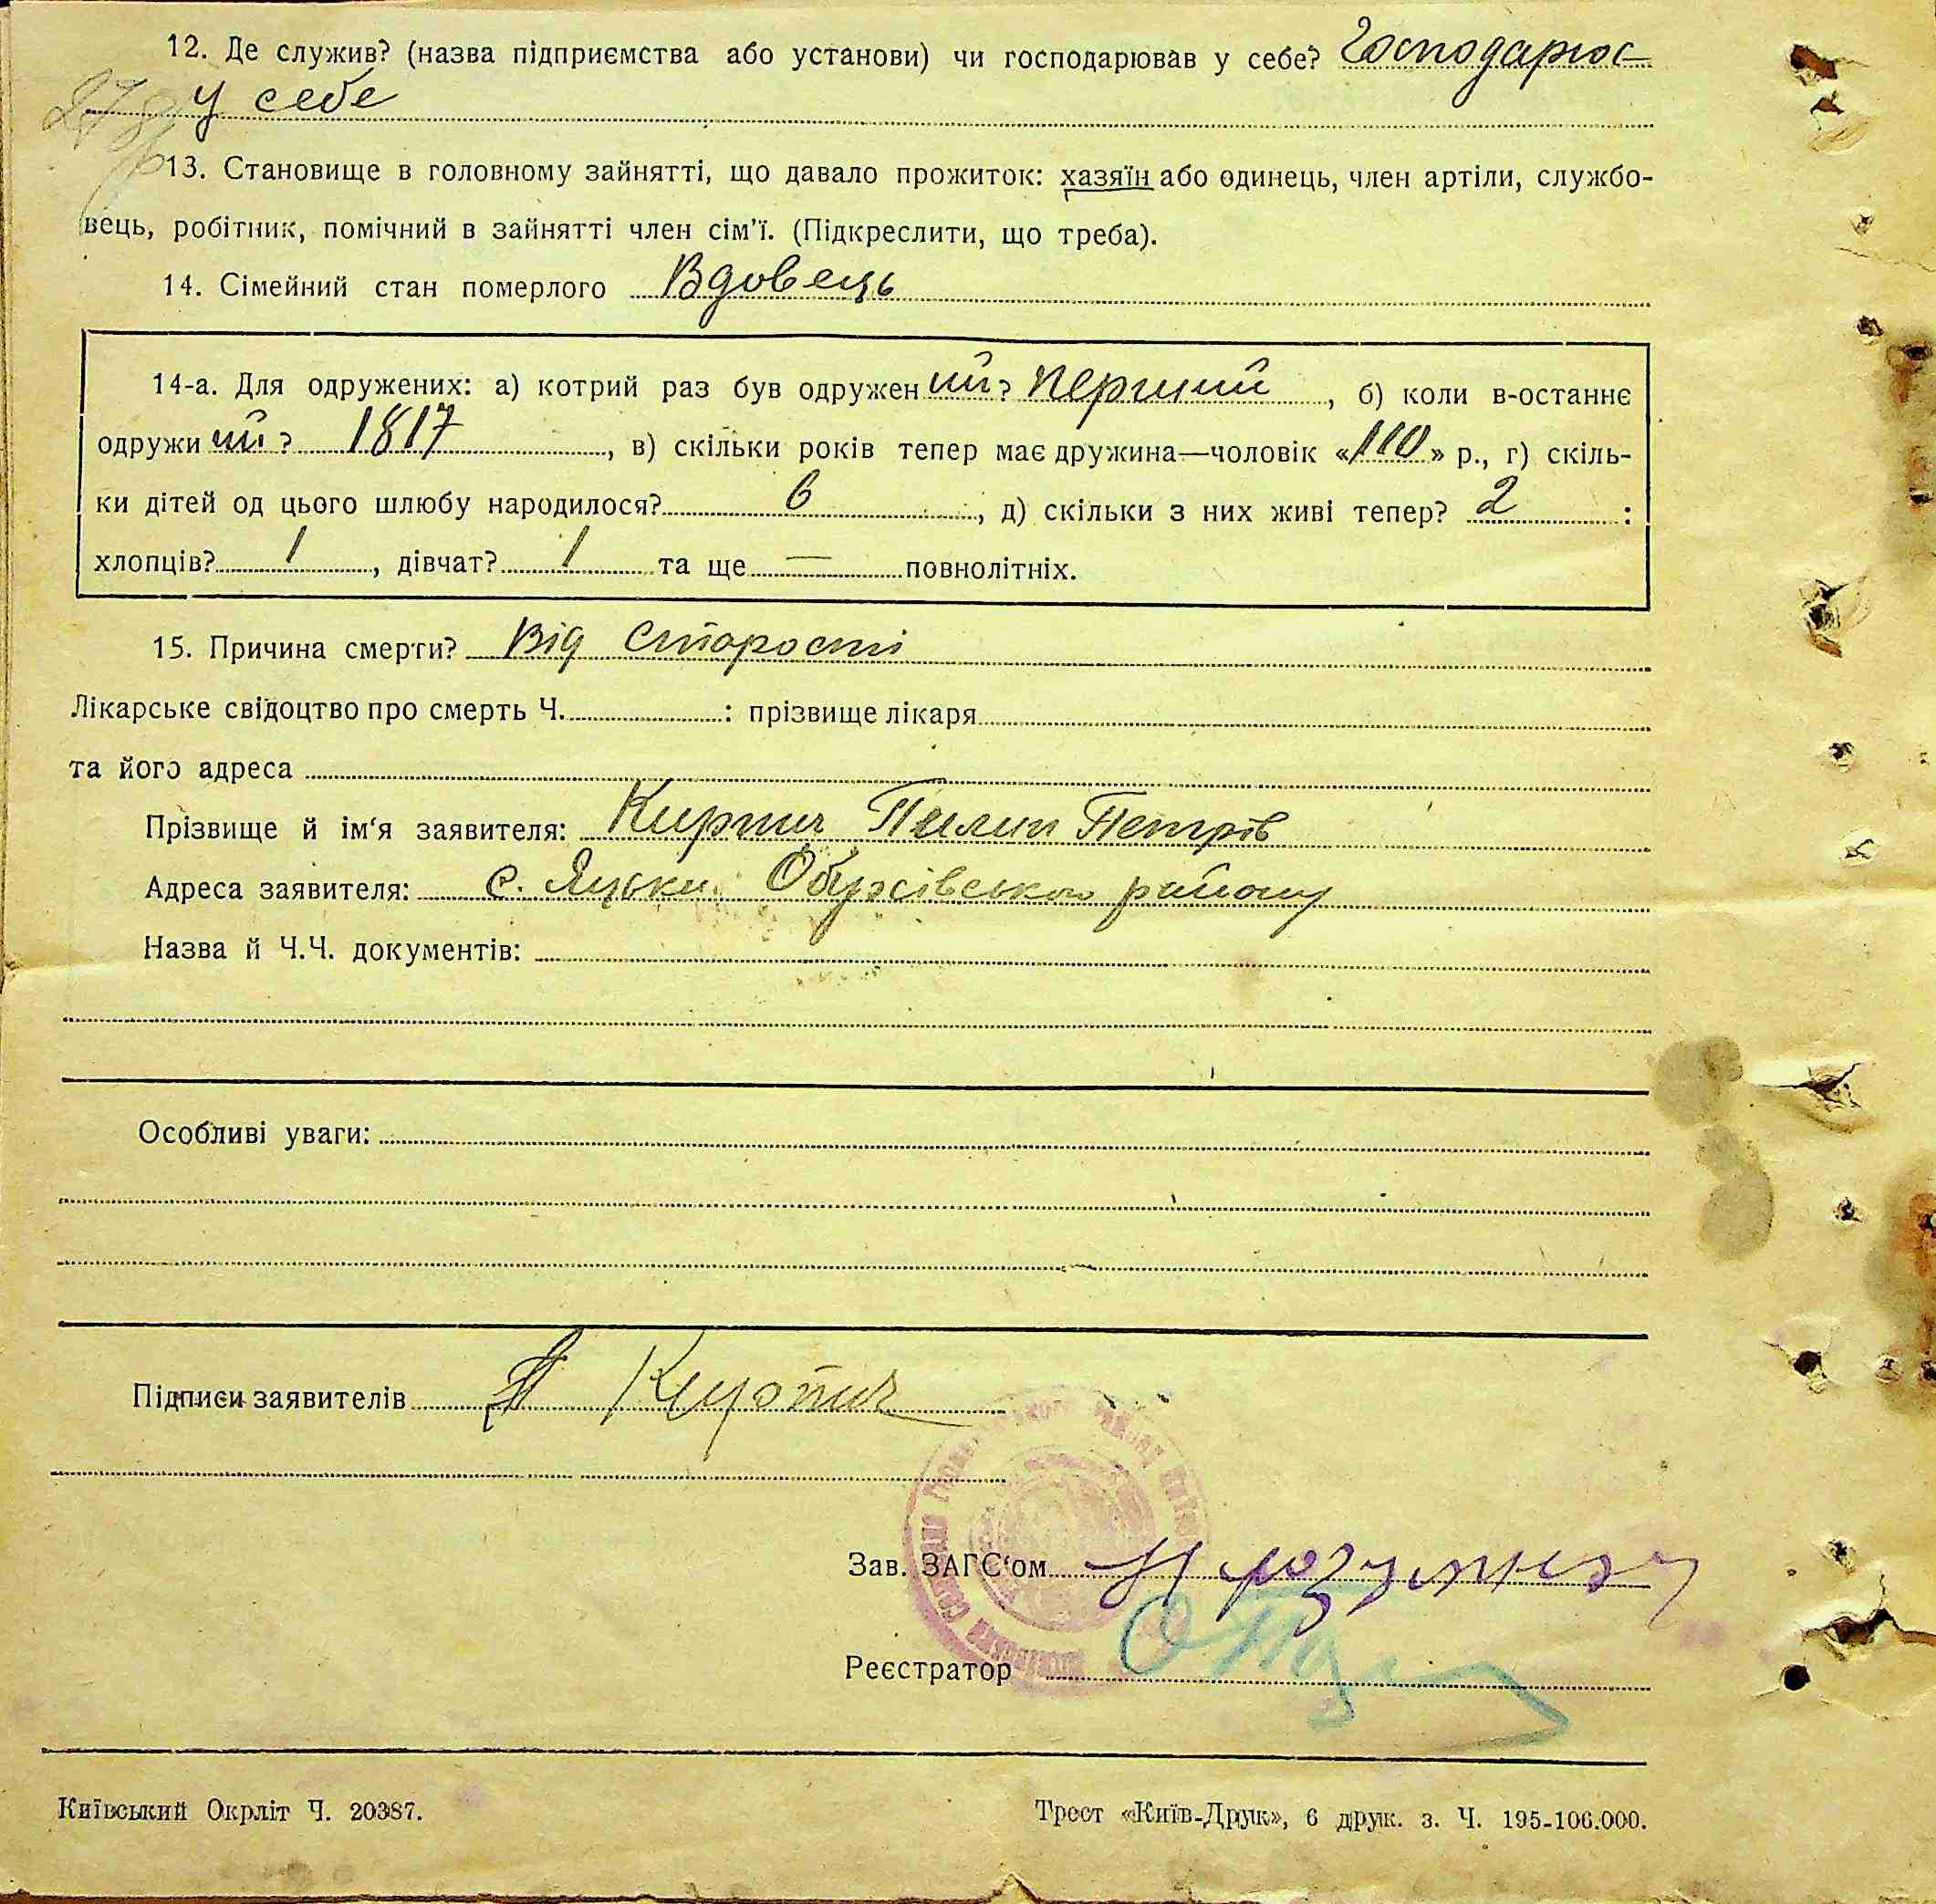 12. Де служив? (назва підприємства або установи) чи господарював у себе? Господарює
у себе
13. Становище в головному зайнятті, що давало прожиток: хазяїн або одинець, член артіли, службо-
вець, робітник, помічний в зайнятті член сім'ї. (Підкреслити, що треба).
14. Сімейний стан померлого Вдовець
14-а. Для одружених: а) котрий раз був одружен ий? перший, б) коли в-останнє
одружи ий? 1817, в) скільки років тепер має дружина—чоловік «110» р., г) скіль-
ки дітей од цього шлюбу народилося? 6, д) скільки з них живі тепер? 2 :
хлопців? 1, дівчат? 1 та ще — повнолітніх.
15. Причина смерти? Від старости
Лікарське свідоцтво про смерть Ч. : прізвище лікаря
та його адреса
Прізвище й ім'я заявителя: Кирпич Пилип Петрів
Адреса заявителя: с. Яцьки Обухівського району
Назва й Ч.Ч. документів:
Особливі уваги:
Підписи заявителів П Кирпич
Зав. ЗАГС'ом
Реєстратор
Київський Окрліт Ч. 20387.
Трест «Київ-Друк», 6 друк. з. Ч. 195-106.000.